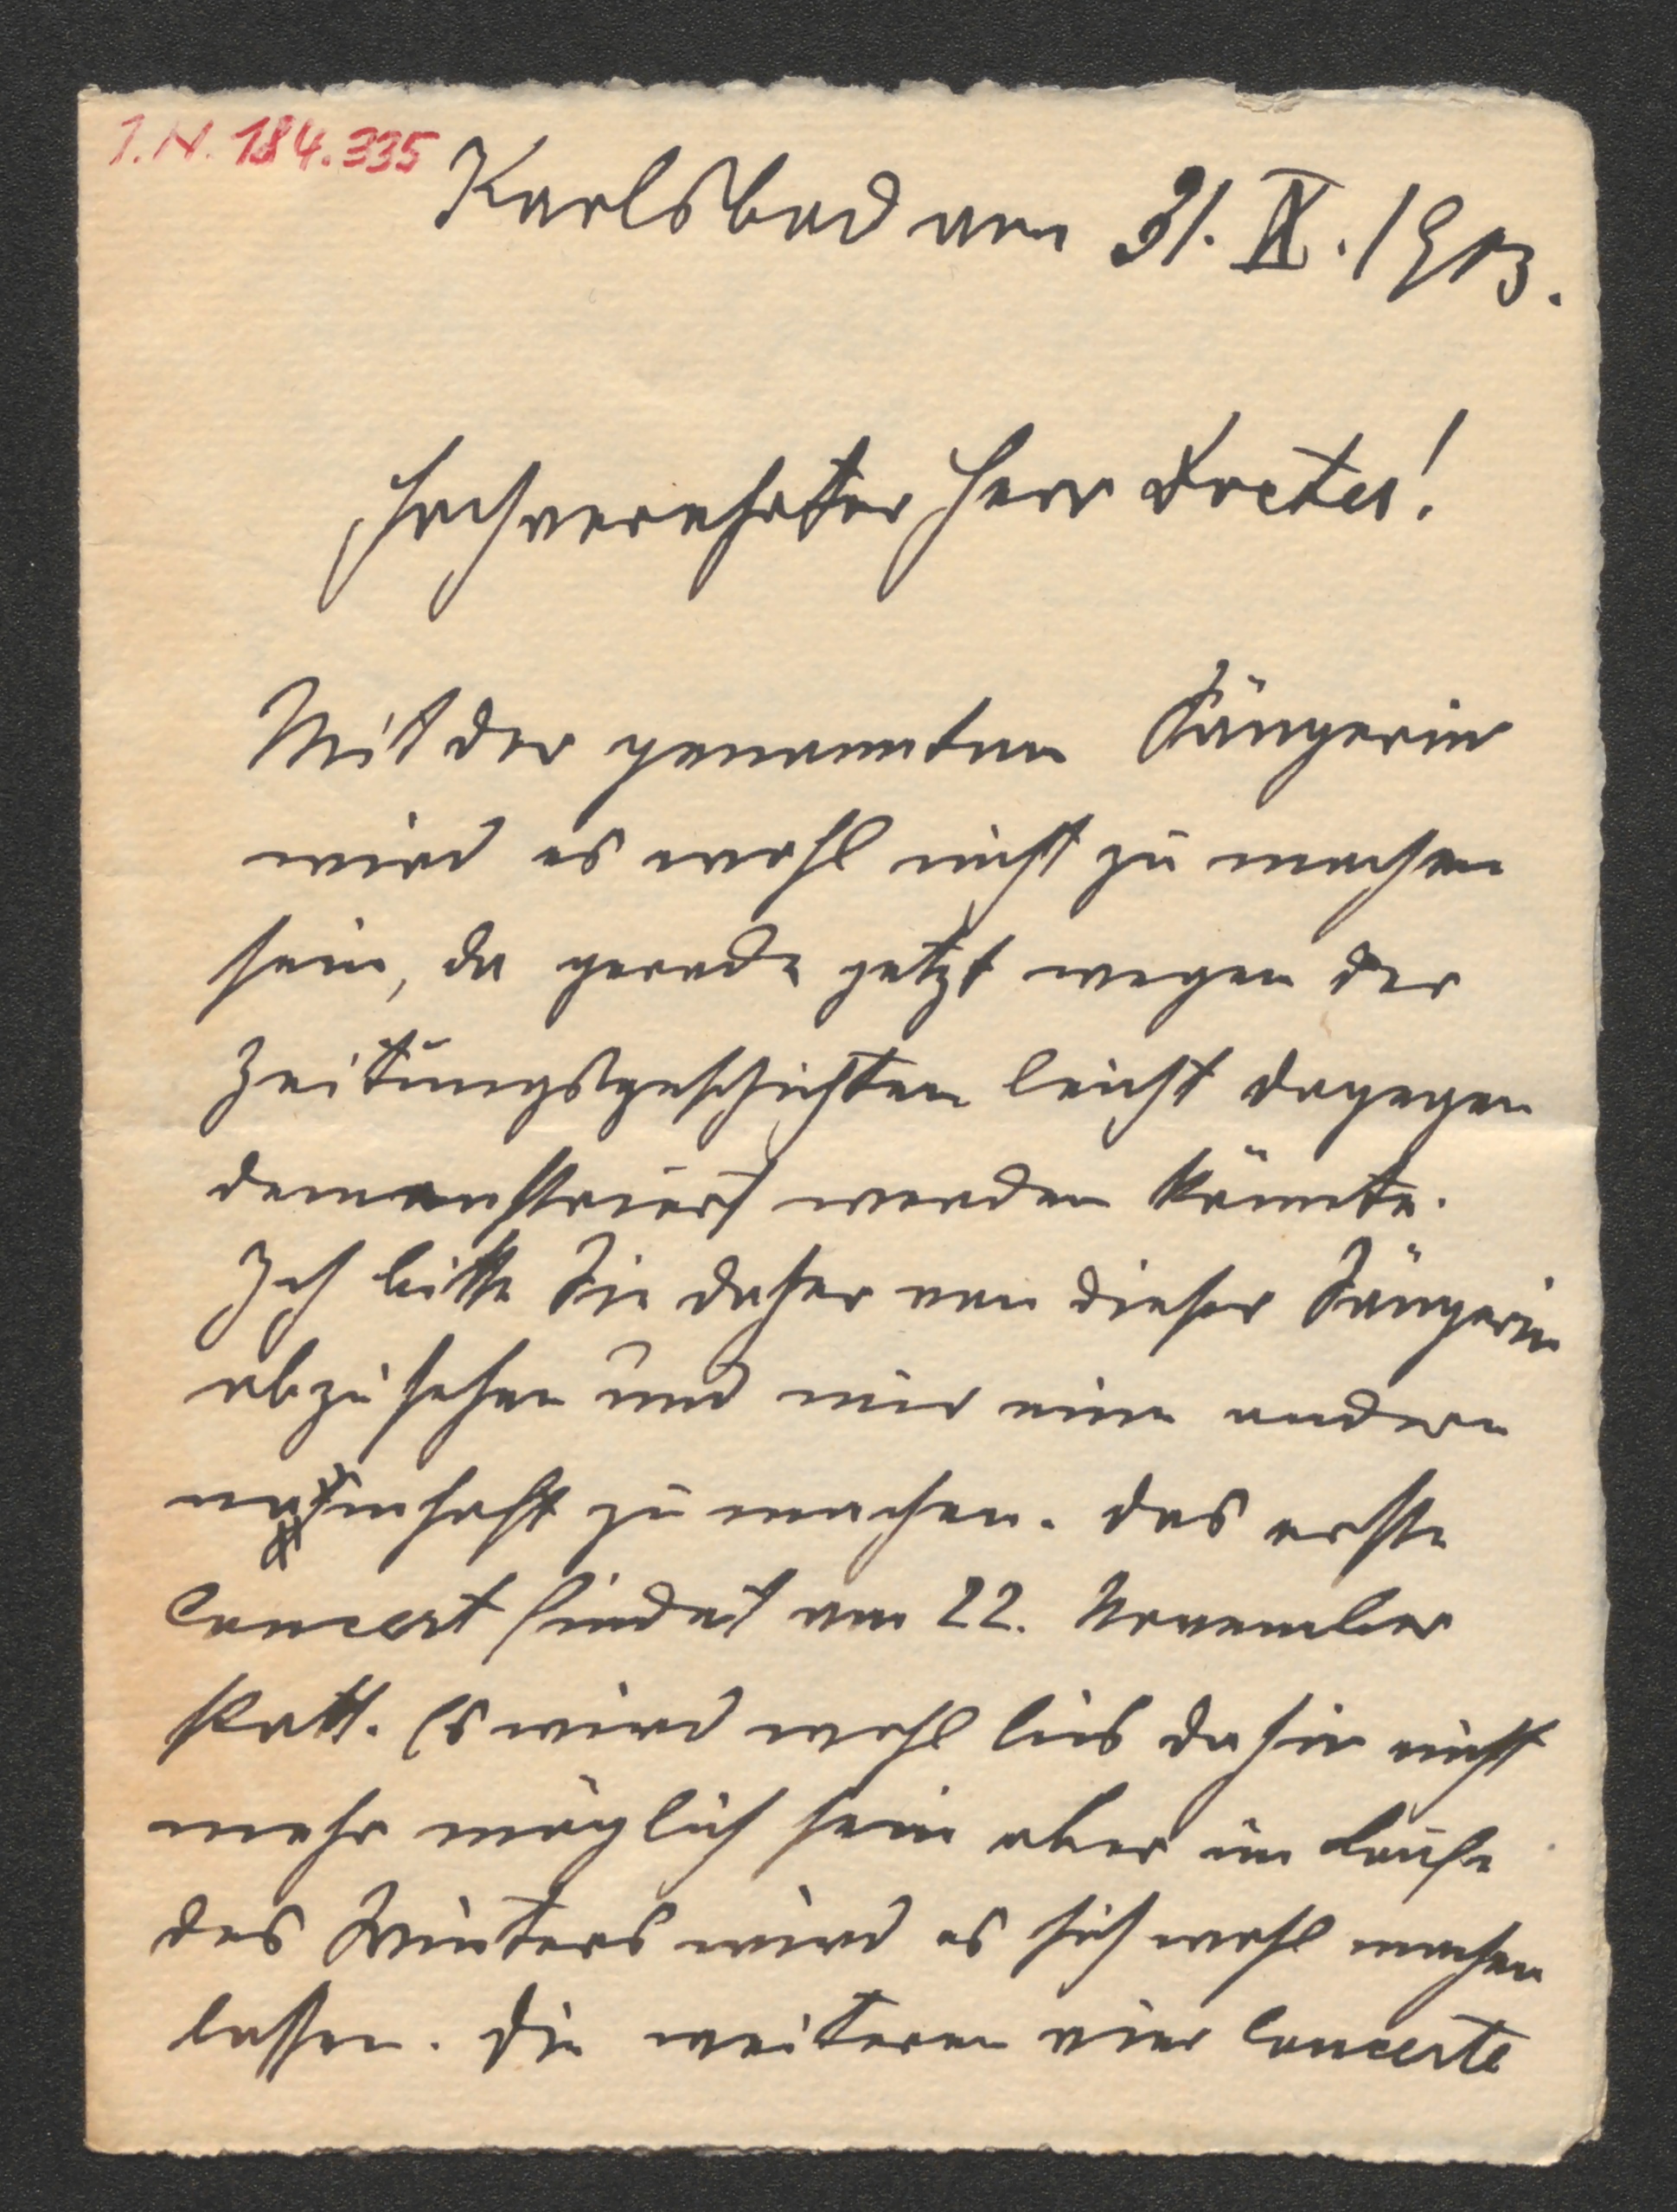 I.N. 184.335
Karlsbad am 31. X. 1913.
Hochverehrter Herr Docter!
Mit der genannten Sängerin
wird es wohl nicht zu machen
sein, da gerade jetzt wegen der
Zeitungsgeschichten leicht dagegen
demonstriert werden könnte.
Ich bitte Sie daher von dieser Sängerin
abzusehen und mir eine andere
namhaft zu machen. Das erste
Concert findet am 22. November
statt. Es wird wohl bis dahin nicht
mehr möglich sein aber im Laufe
des Winters wird es sich wohl machen
lassen. Die weiteren vier Concerte